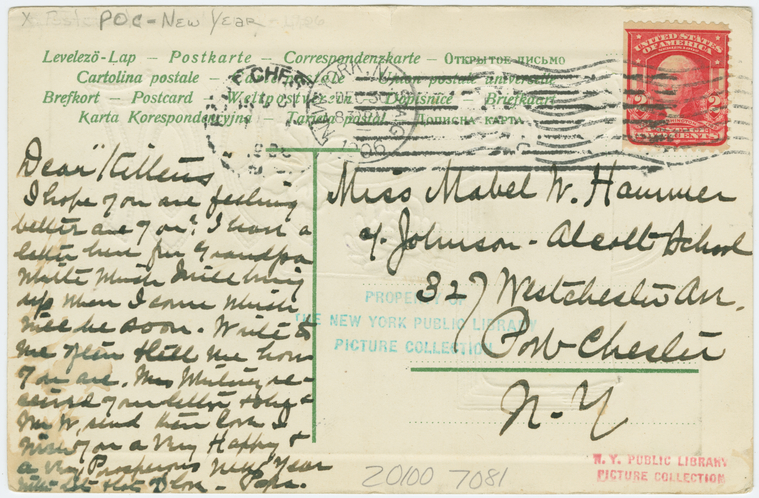 POC - NEW YEAR
Levelező-Lap — Postkarte — Correspondenzkarte — Открытое письмо
Cartolina postale — — Union postale universelle
Brefkort — Postcard — Weltpostverein — Dopisnice — Briefkaart
Karta Korespondencyjna — Tarjeta postal — Дописна карта
NEW YORK, N.Y.
DEC 30
1906
UNITED STATES
OF AMERICA
2 2
CENTS
Dear "Kittens
I hope you are feeling
better are you? I have a
letter here for Grandpa
White which I will bring
up when I come which
will be soon. Write to
me often & tell me how
you are. Mrs re-
ceived your letter & she &
Mr W. send their love. I
wish you a Very Happy &
a very Prosperous New Year
with lots & lots of love - Papa.
Miss Mabel W. Hammer
c/o Johnson - Alcott School
327 Westchester Av.
Port Chester
N.Y
PROPERTY OF
THE NEW YORK PUBLIC LIBRARY
PICTURE COLLECTION
20100 7081
N. Y. PUBLIC LIBRARY
PICTURE COLLECTION